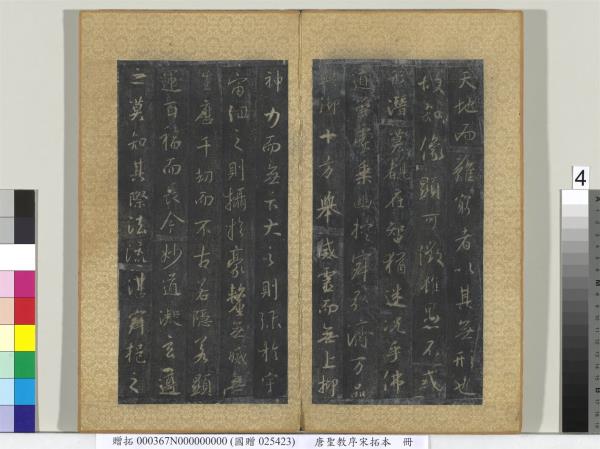 天地而難窮者以其無形也
故知像顯可徵雖愚不惑
形潛莫覩在智猶迷況乎佛
道崇虛乘幽控寂弘濟万品
典御十方舉威靈而無上抑
神力而無下大之則彌於宇
宙細之則攝於豪釐無滅無
生歷千劫而不古若隱若顯
運百福而長今妙道凝玄遵
之莫知其際法流湛寂挹之
4
贈拓 000367N000000000 (國贈 025423) 唐聖教序宋拓本 冊